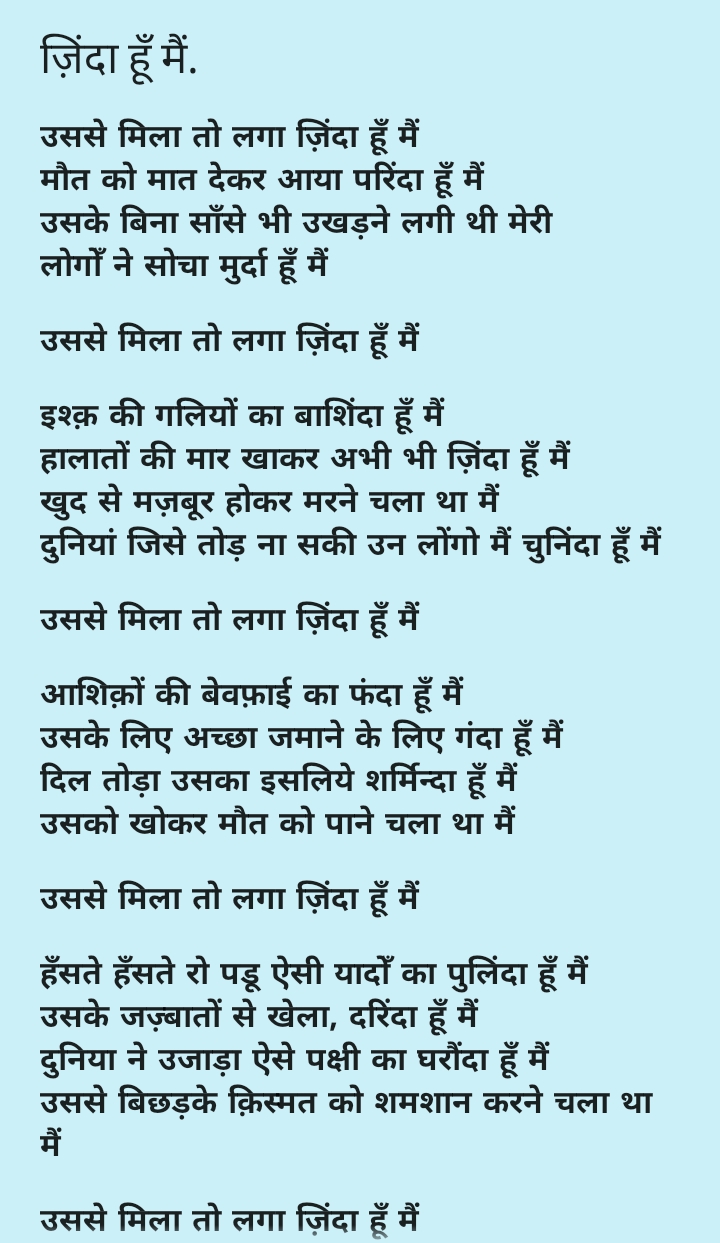 ज़िंदा हूँ मैं.
उससे मिला तो लगा ज़िंदा हूँ मैं
मौत को मात देकर आया परिंदा हूँ मैं
उसके बिना साँसे भी उखड़ने लगी थी मेरी
लोगोँ ने सोचा मुर्दा हूँ मैं
उससे मिला तो लगा ज़िंदा हूँ मैं
इश्क़ की गलियों का बाशिंदा हूँ मैं
हालातों की मार खाकर अभी भी ज़िंदा हूँ मैं
खुद से मज़बूर होकर मरने चला था मैं
दुनियां जिसे तोड़ ना सकी उन लोंगो मैं चुनिंदा हूँ मैं
उससे मिला तो लगा ज़िंदा हूँ मैं
आशिक़ों की बेवफ़ाई का फंदा हूँ मैं
उसके लिए अच्छा जमाने के लिए गंदा हूँ मैं
दिल तोड़ा उसका इसलिये शर्मिन्दा हूँ मैं
उसको खोकर मौत को पाने चला था मैं
उससे मिला तो लगा ज़िंदा हूँ मैं
हँसते हँसते रो पडू ऐसी यादोँ का पुलिंदा हूँ मैं
उसके जज़्बातों से खेला, दरिंदा हूँ मैं
दुनिया ने उजाड़ा ऐसे पक्षी का घरौंदा हूँ मैं
उससे बिछड़के क़िस्मत को शमशान करने चला था
मैं
उससे मिला तो लगा ज़िंदा हूँ मैं